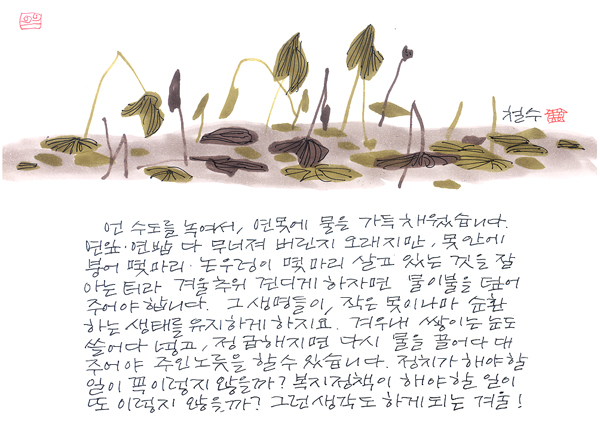 철수
언 수도를 녹여서, 연못에 물을 가득 채웠습니다.
연잎·연밥 다 무너져 버린지 오래지만, 못안에
붕어 몇마리·논우렁이 몇마리 살고 있는 것을 잘
아는터라 겨울추위 견디게 하자면 물이불을 덮어
주어야 합니다. 그 생명들이, 작은 못이나마 순환
하는 생태를 유지하게 하지요. 겨우내 쌓이는 눈도
쓸어다 넣고, 정 급해지면 다시 물을 끌어다 대
주어야 주인노릇을 할 수 있습니다. 정치가 해야할
일이 꼭 이렇지 않을까? 복지정책이 해야할 일이
또 이렇지 않을까? 그런 생각도 하게 되는 겨울!